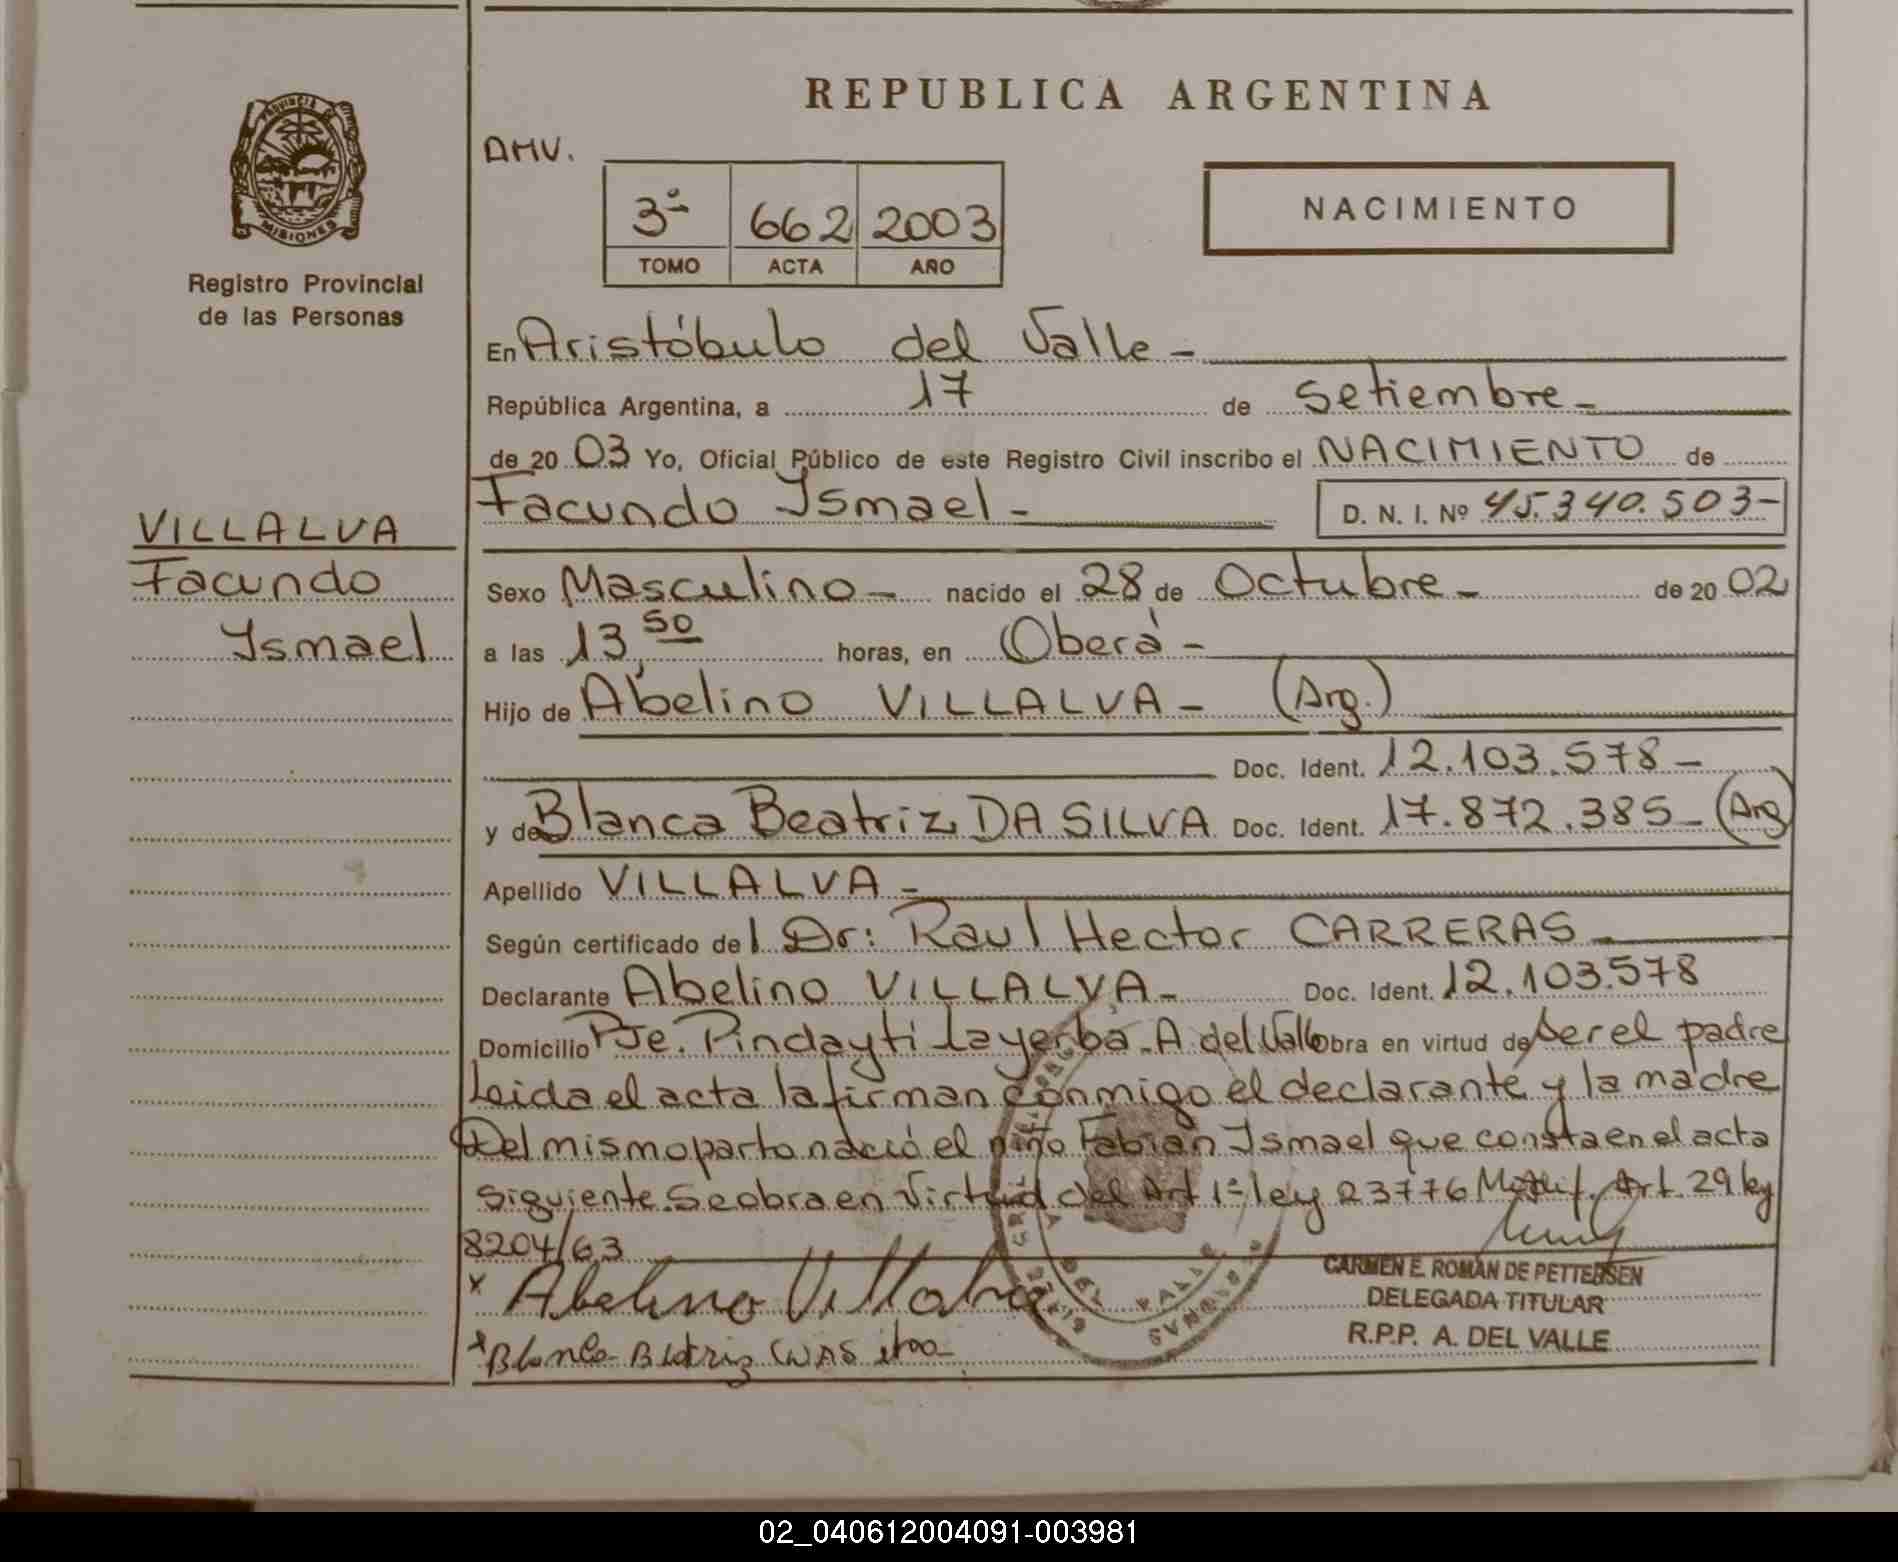 REPUBLICA ARGENTINA
PROVINCIA DE
MISIONES
Registro Provincial
de las Personas
AMV.
3ª 662 2003
TOMO ACTA AÑO
NACIMIENTO
En Aristóbulo del Valle -
República Argentina, a 17 de Setiembre -
de 20 03 Yo, Oficial Público de este Registro Civil inscribo el NACIMIENTO de
Facundo Ismael -
D. N. I. Nº 45.340.503-
VILLALVA
Facundo
Ismael
Sexo Masculino - nacido el 28 de Octubre - de 20 02
a las 13,50 horas, en Oberá -
Hijo de Abelino VILLALVA - (Arg.)
Doc. Ident. 12.103.578 -
y de Blanca Beatriz DA SILVA Doc. Ident. 17.872.385 - (Arg
Apellido VILLALVA -
Según certificado del Dr: Raul Hector CARRERAS -
Declarante Abelino VILLALVA - Doc. Ident. 12.103.578
Domicilio Pje. Pindayti La yerba - A del Valle obra en virtud de ser el padre
Leida el acta la firman conmigo el declarante y la madre
Del mismo parto nació el niño Fabian Ismael que consta en el acta
siguiente. Se obra en virtud del Art 1º ley 23776 Modif. Art. 29 ley
8204/63
x Abelino Villalva
x Blanca
CARMEN E. ROMAN DE PETTERSEN
DELEGADA TITULAR
R.P.P. A. DEL VALLE
DEL VALLE
02_040612004091-003981